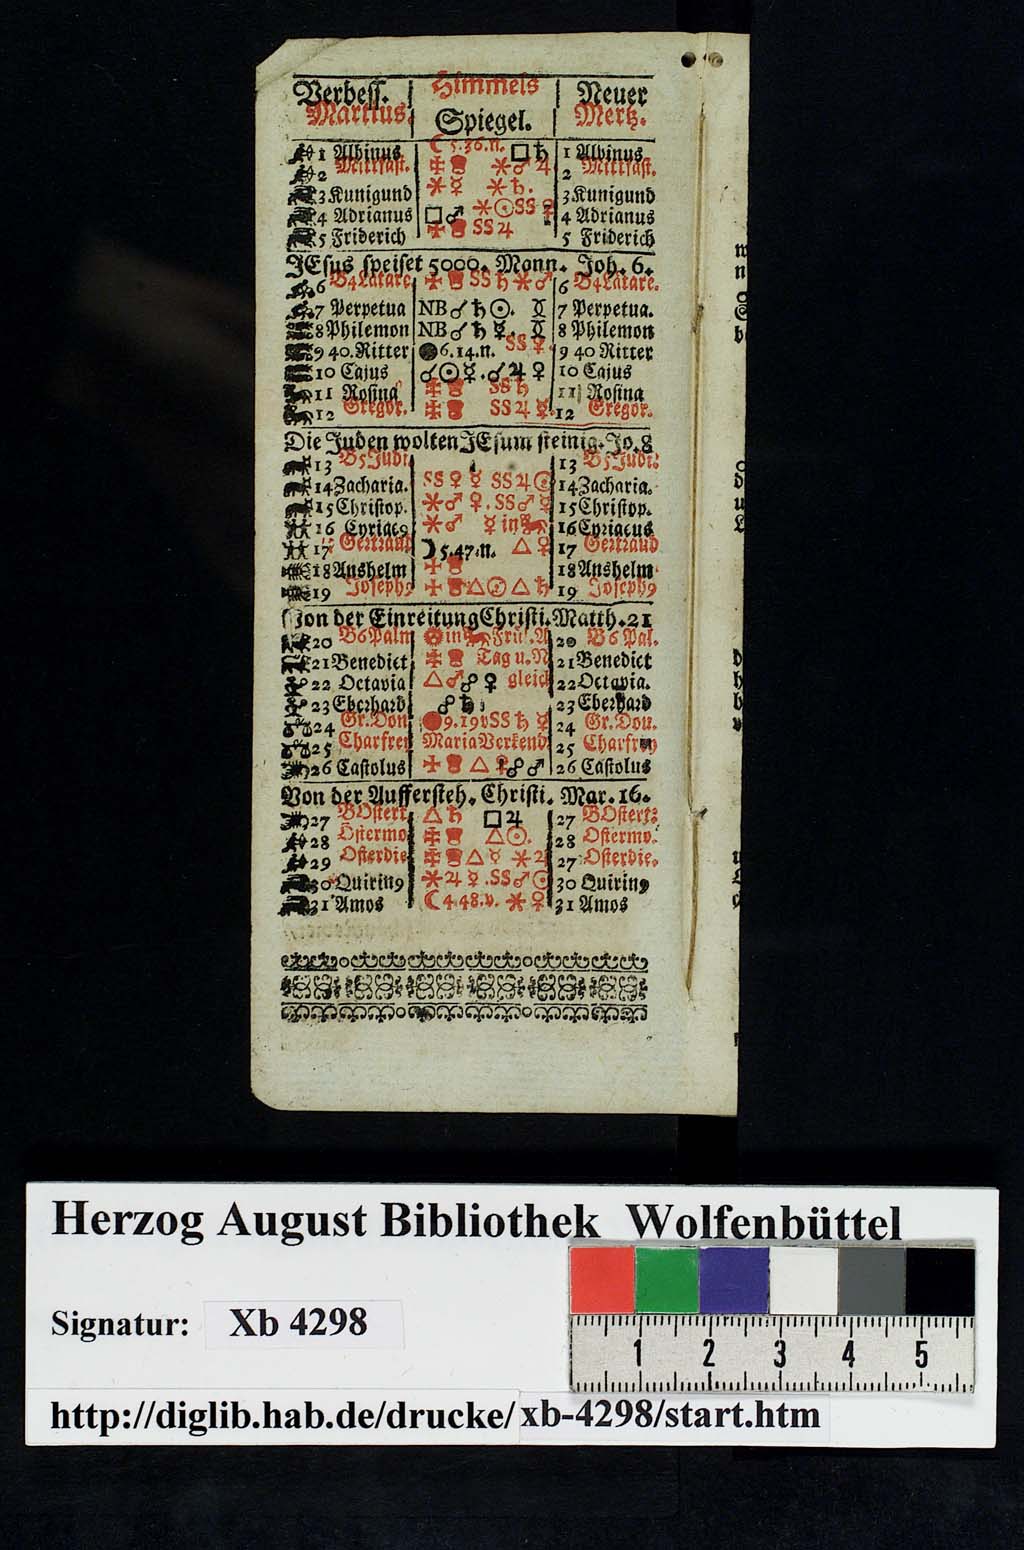 Verbess. Himmels Neuer
Martius. Spiegel. Mertz.
1 Albinus ☾ 5.36.n. □ ♄ 1 Albinus
2 Mittfast. ✠ ⚹ ♂ ♃ 2 Mittfast.
3 Kunigund ⚹ ☿ ⚹ ♄. 3 Kunigund
4 Adrianus □ ♂ ⚹ ☉ SS ♀ 4 Adrianus
5 Friderich ✠ SS ♃ 5 Friderich
JEsus speiset 5000. Mann. Joh. 6.
6 B4Lätare ✠ SS ♄ ⚹ ♂ 6 B4Lätare.
7 Perpetua NB ☌ ♄ ☉. ☿ 7 Perpetua.
8 Philemon NB ☌ ♄ ☿. 8 Philemon
9 40. Ritter ● 6.14.n. SS ♀. 9 40 Ritter
10 Cajus ☌ ☉ ☿. ☌ ♃ ♀ 10 Cajus
11 Rosina ✠ SS ♄ 11 Rosina
12 Gregor. ✠ SS ♃ ☿. 12 Gregor.
Die Juden wolten JEsum steinig. Jo. 8
13 B5Judi 13 B5Judi:
14 Zacharia. SS ♀ ☿ SS ♃ ☉ 14 Zacharia.
15 Christop. ⚹ ♂ ♀. SS ♂ ☿ 15 Christop.
16 Cyriac9 ⚹ ♂ ☿ in 16 Cyriacus
17 Gertraud ☽ 5.47.n. △ ♀ 17 Gertraud
18 Anshelm ✠ 18 Anshelm
19 Joseph9 ✠ △ ☉ △ ♄ 19 Joseph9
Von der Einreitung Christi. Matth. 21
20 B6Palm ☉ in Frül. A 20 B6 Pal.
21 Benedict ✠ Tag u. N 21 Benedict
22 Octavia △ ♂ ☍ ♀ gleich 22 Octavia.
23 Eberhard ☍ ♄ 23 Eberhard
24 Gr. Don ● 9.19v SS ♄ ☿ 24 Gr. Don.
25 Charfrey Maria Verkend. 25 Charfrey
26 Castolus ✠ △ ☍ ♂ 26 Castolus
Von der Auffersteh. Christi. Mar. 16.
27 BOstert △ ♄ □ ♃ 27 BOstert:
28 Ostermo ✠ △ ☉. 28 Ostermo.
29 Osterdie ✠ △ ☿ ⚹ ♃ 27 Osterdie.
30 Quirin9 ⚹ ♃ ♀. SS ♂ ☉ 30 Quirin9
31 Amos ☾ 4.48.v. ⚹ ♀ 31 Amos
Herzog August Bibliothek Wolfenbüttel
Signatur: Xb 4298
1 2 3 4 5
http://diglib.hab.de/drucke/xb-4298/start.htm